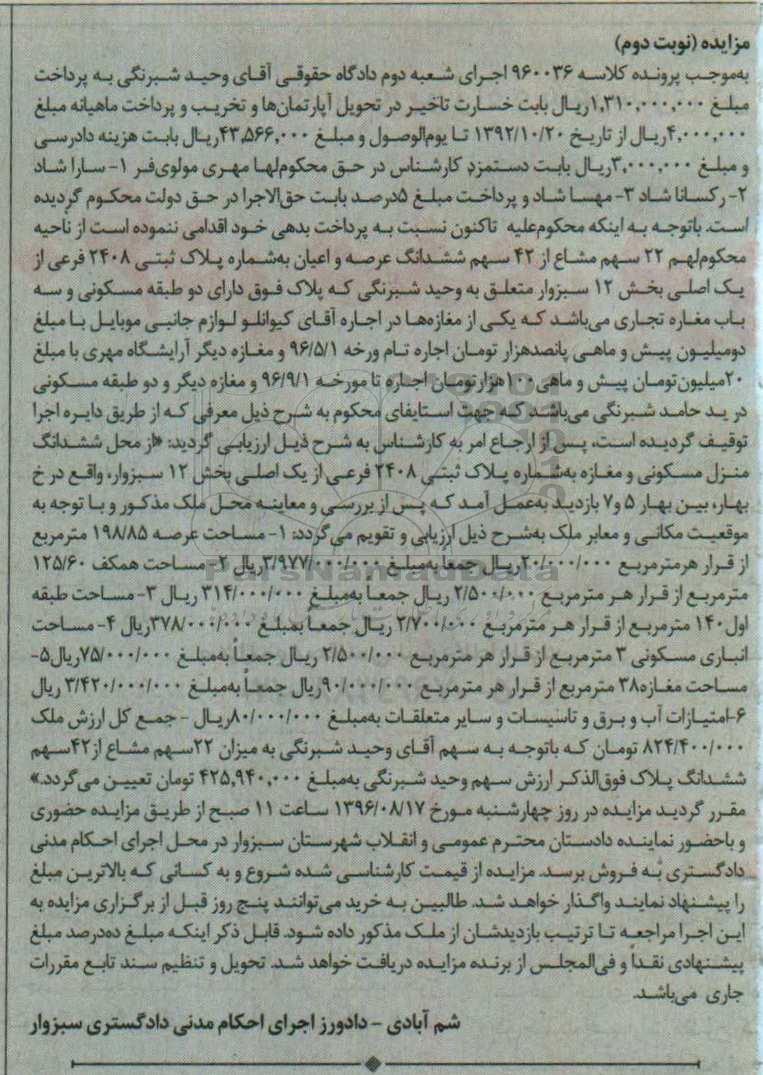 مزایده (نوبت دوم)
به‌موجب پرونده کلاسه ۹۶۰۰۳۶ اجرای شعبه دوم دادگاه حقوقی آقای وحید شبرنگی به پرداخت
مبلغ ۱,۳۱۰,۰۰۰,۰۰۰ریال بابت خسارت تاخیر در تحویل آپارتمان‌ها و تخریب و پرداخت ماهیانه مبلغ
۴,۰۰۰,۰۰۰ریال از تاریخ ۱۳۹۲/۱۰/۲۰ تا یوم‌الوصول و مبلغ ۴۳,۵۶۶,۰۰۰ریال بابت هزینه دادرسی
و مبلغ ۳,۰۰۰,۰۰۰ریال بابت دستمزد کارشناس در حق محکوم‌لها مهری مولوی‌فر ۱- سارا شاد
۲- رکسانا شاد ۳- مهسا شاد و پرداخت مبلغ ۵درصد بابت حق‌الاجرا در حق دولت محکوم گردیده
است. باتوجه به اینکه محکوم‌علیه تاکنون نسبت به پرداخت بدهی خود اقدامی ننموده است از ناحیه
محکوم‌لهم ۲۲ سهم مشاع از ۴۲ سهم ششدانگ عرصه و اعیان به‌شماره پلاک ثبتی ۲۴۰۸ فرعی از
یک اصلی بخش ۱۲ سبزوار متعلق به وحید شبرنگی که پلاک فوق دارای دو طبقه مسکونی و سه
باب مغازه تجاری می‌باشد که یکی از مغازه‌ها در اجاره آقای کیوانلو لوازم جانبی موبایل با مبلغ
دومیلیون پیش و ماهی پانصدهزار تومان اجاره تام ورخه ۹۶/۵/۱ و مغازه دیگر آرایشگاه مهری با مبلغ
۲۰میلیون‌تومان پیش و ماهی ۱۰۰هزارتومان اجاره تا مورخه ۹۶/۹/۱ و مغازه دیگر و دو طبقه مسکونی
در ید حامد شبرنگی می‌باشد که جهت استایفای محکوم به شرح ذیل معرفی که از طریق دایره اجرا
توقیف گردیده است، پس از ارجاع امر به کارشناس به شرح ذیل ارزیابی گردید: «از محل ششدانگ
منزل مسکونی و مغازه به‌شماره پلاک ثبتی ۲۴۰۸ فرعی از یک اصلی بخش ۱۲ سبزوار، واقع در خ
بهار، بین بهار ۵ و۷ بازدید به‌عمل آمد که پس از بررسی و معاینه محل ملک مذکور و با توجه به
موقعیت مکانی و معابر ملک به‌شرح ذیل ارزیابی و تقویم می‌گردد: ۱- مساحت عرصه ۱۹۸/۸۵ مترمربع
از قرار هرمترمربع ۲۰/۰۰۰/۰۰۰ریال جمعا به‌مبلغ ۳/۹۷۷/۰۰۰/۰۰۰ریال ۲- مساحت همکف ۱۲۵/۶۰
مترمربع از قرار هر مترمربع ۲/۵۰۰/۰۰۰ ریال جمعا به‌مبلغ ۳۱۴/۰۰۰/۰۰۰ ریال ۳- مساحت طبقه
اول۱۴۰ مترمربع از قرار هر مترمربع ۲/۷۰۰/۰۰۰ ریال جمعاً بمبلغ ۳۷۸/۰۰۰/۰۰۰ریال ۴- مساحت
انباری مسکونی ۳ مترمربع از قرار هر مترمربع ۲/۵۰۰/۰۰۰ ریال جمعاً به‌مبلغ ۷۵/۰۰۰/۰۰۰ریال۵-
مساحت مغازه۳۸ مترمربع از قرار هر مترمربع ۹۰/۰۰۰/۰۰۰ریال جمعاً به‌مبلغ ۳/۴۲۰/۰۰۰/۰۰۰ ریال
۶-امتیازات آب و برق و تاسیسات و سایر متعلقات به‌مبلغ ۸۰/۰۰۰/۰۰۰ریال - جمع کل ارزش ملک
۸۲۴/۴۰۰/۰۰۰ تومان که باتوجه به سهم آقای وحید شبرنگی به میزان ۲۲سهم مشاع از۴۲سهم
ششدانگ پلاک فوق‌الذکر ارزش سهم وحید شبرنگی به‌مبلغ ۴۲۵,۹۴۰,۰۰۰ تومان تعیین می‌گردد.»
مقرر گردید مزایده در روز چهارشنبه مورخ ۱۳۹۶/۰۸/۱۷ ساعت ۱۱ صبح از طریق مزایده حضوری
و باحضور نماینده دادستان محترم عمومی و انقلاب شهرستان سبزوار در محل اجرای احکام مدنی
دادگستری به فروش برسد. مزایده از قیمت کارشناسی شده شروع و به کسانی که بالاترین مبلغ
را پیشنهاد نمایند واگذار خواهد شد. طالبین به خرید می‌توانند پنج روز قبل از برگزاری مزایده به
این اجرا مراجعه تا ترتیب بازدیدشان از ملک مذکور داده شود. قابل ذکر اینکه مبلغ ده‌درصد مبلغ
پیشنهادی نقداً و فی‌المجلس از برنده مزایده دریافت خواهد شد. تحویل و تنظیم سند تابع مقررات
جاری می‌باشد.
شم آبادی - دادورز اجرای احکام مدنی دادگستری سبزوار
ParsNamadData